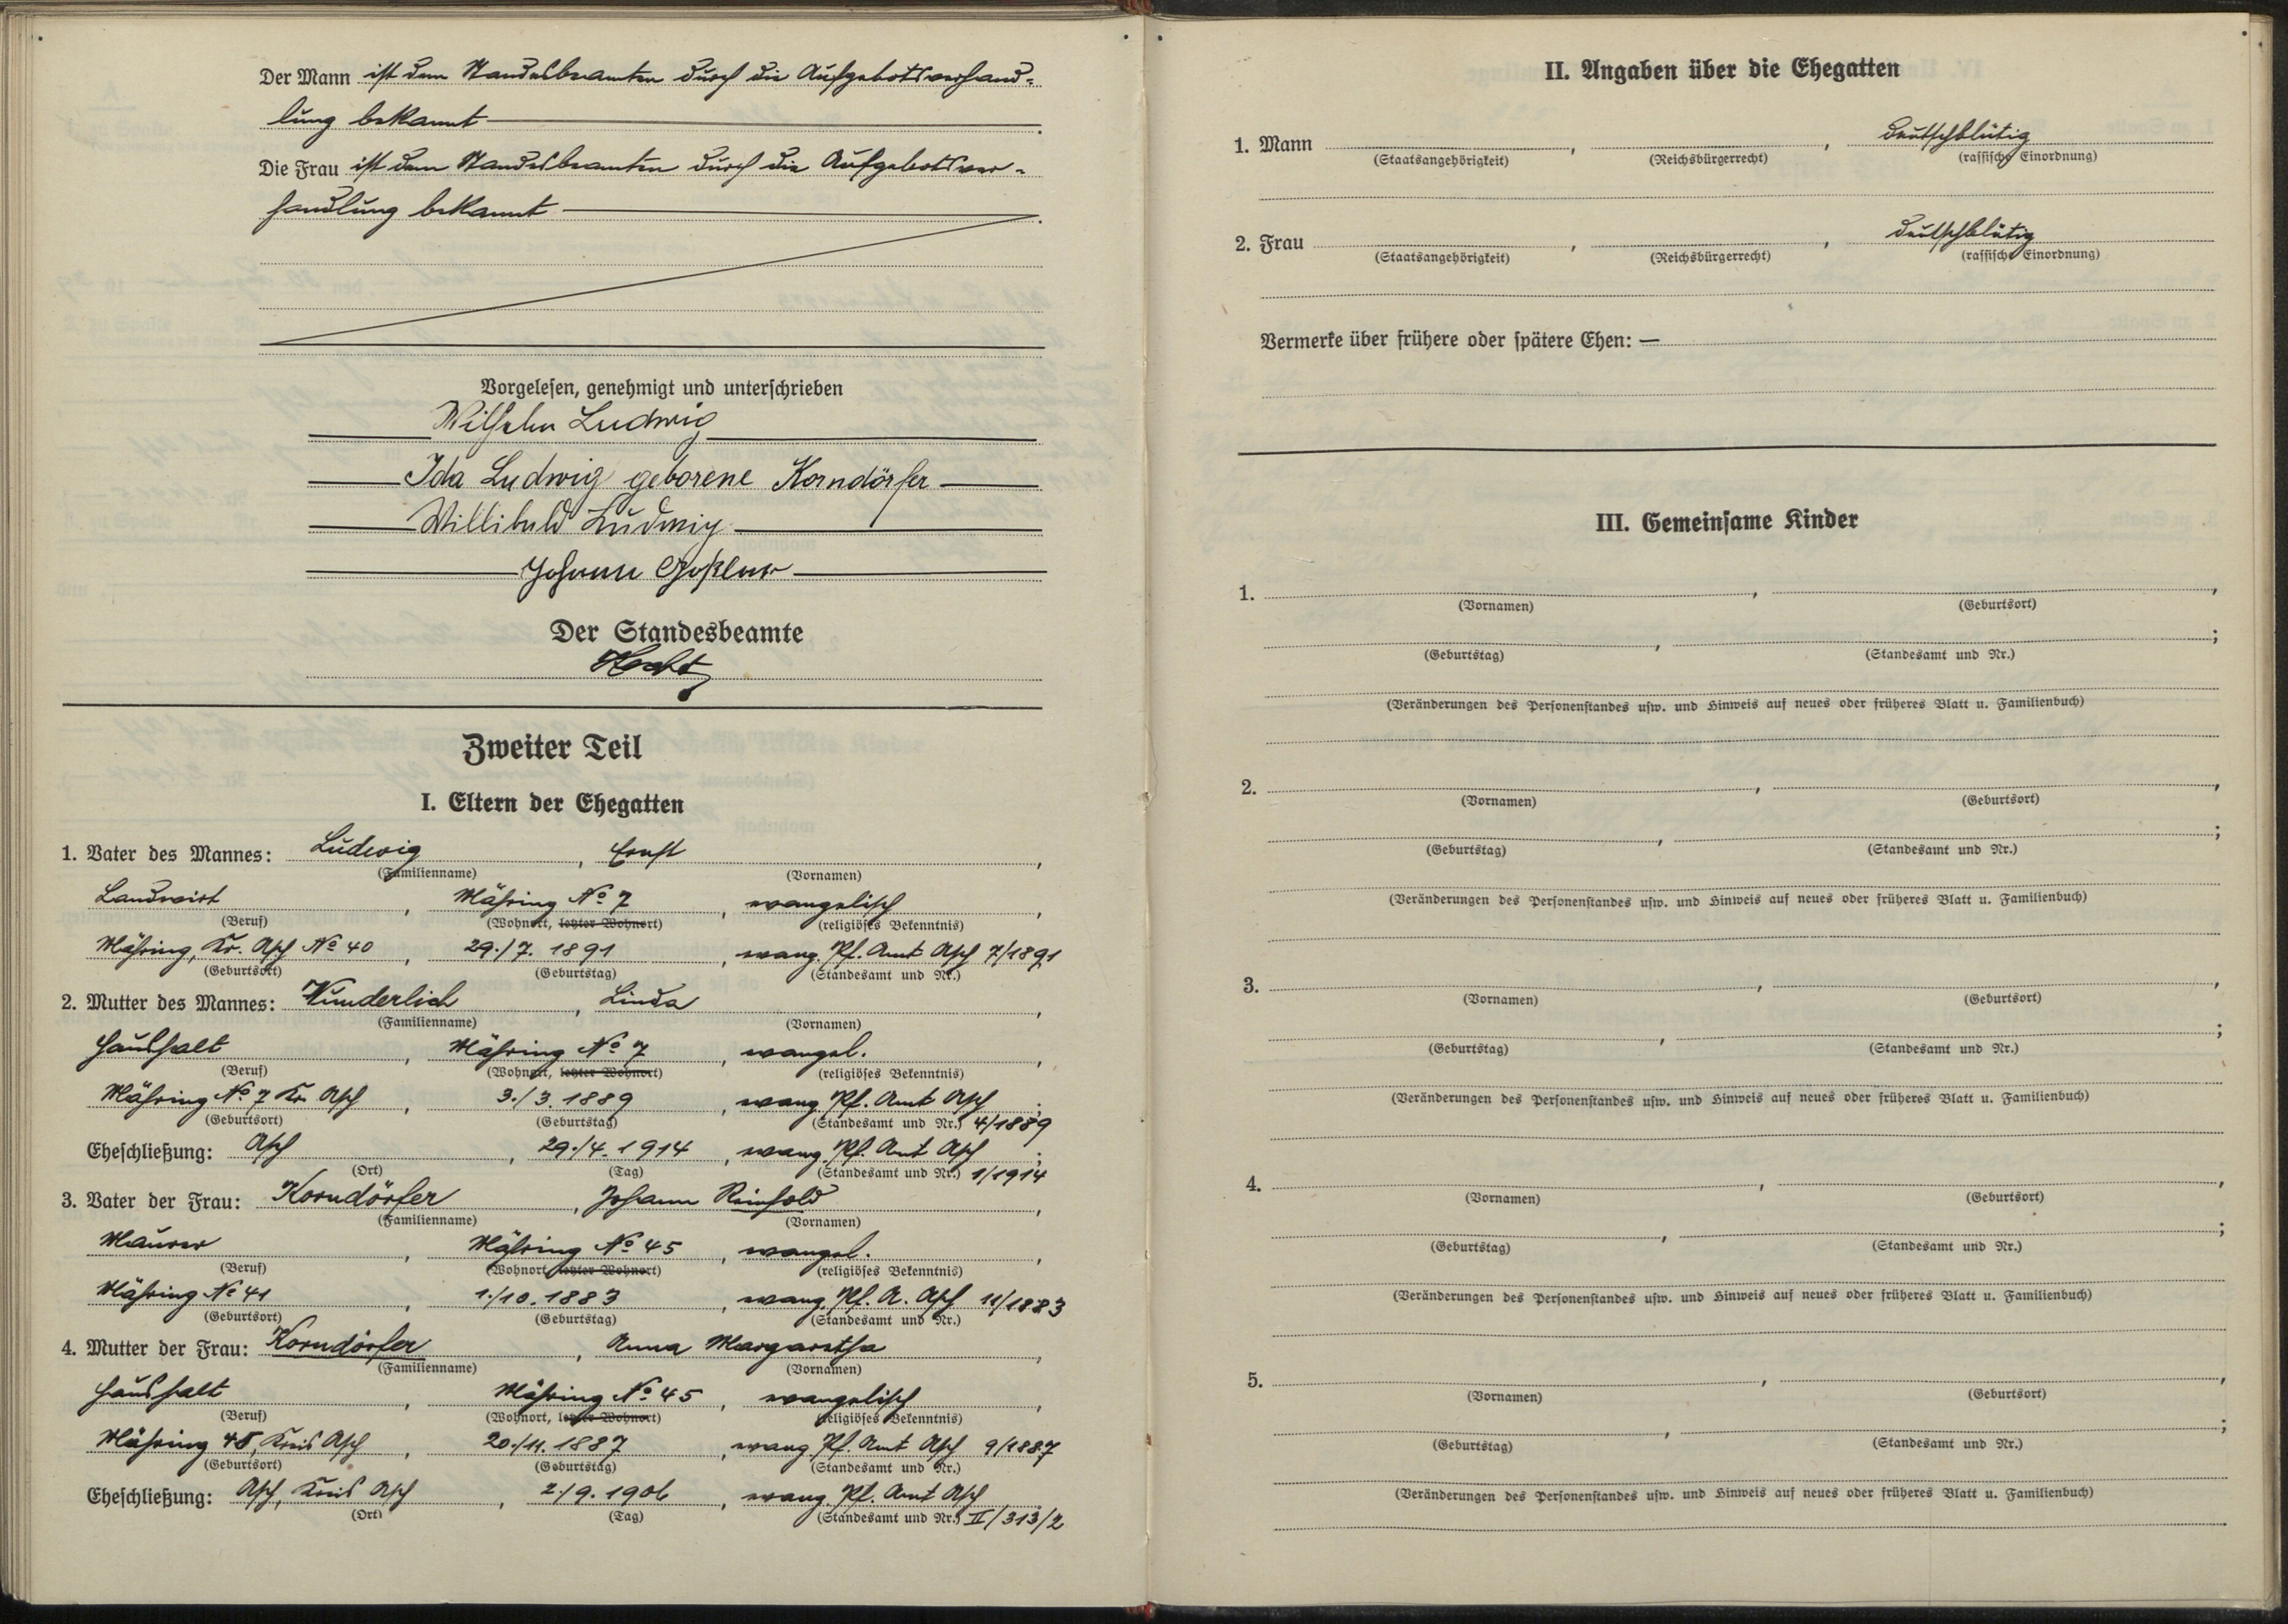 Der Mann ist dem Standesbeamten durch die Aufgebotsverhand-
lung bekannt
Die Frau ist dem Standesbeamten durch die Aufgebotsver-
handlung bekannt
Vorgelesen, genehmigt und unterschrieben
Wilhelm Ludwig
Ida Ludwig geborene Korndörfer
Willibald Ludwig
Johann
Der Standesbeamte
Zweiter Teil
I. Eltern der Ehegatten
1. Vater des Mannes: Ludwig, Ernst,
(Familienname) (Vornamen)
Landwirt, Mähring No 7, evangelisch,
(Beruf) (Wohnort, letzter Wohnort) (religiöses Bekenntnis)
Mähring, Kr. Asch No 40, 29./7. 1891, evang. Pf. Amt Asch 7/1891
(Geburtsort) (Geburtstag) (Standesamt und Nr.)
2. Mutter des Mannes: Wunderlich, Linda,
(Familienname) (Vornamen)
Haushalt, Mähring No 7, evangel.,
(Beruf) (Wohnort, letzter Wohnort) (religiöses Bekenntnis)
Mähring No 7 Kr. Asch, 3./3. 1889, evang. Pf. Amt Asch;
(Geburtsort) (Geburtstag) (Standesamt und Nr.) 4/1889
Eheschließung: Asch, 29./4. 1914, evang. Pf. Amt Asch;
(Ort) (Tag) (Standesamt und Nr.) 1/1914
3. Vater der Frau: Korndörfer, Johann Reinhold,
(Familienname) (Vornamen)
Maurer, Mähring No 45, evangel.,
(Beruf) (Wohnort, letzter Wohnort) (religiöses Bekenntnis)
Mähring No 41, 1./10. 1883, evang. Pf. A. Asch 11/1883
(Geburtsort) (Geburtstag) (Standesamt und Nr.)
4. Mutter der Frau: Korndörfer, Anna Margaretha,
(Familienname) (Vornamen)
Haushalt, Mähring No 45, evangelisch,
(Beruf) (Wohnort, letzter Wohnort) (religiöses Bekenntnis)
Mähring 45, Kreis Asch, 20./11. 1887, evang. Pf. Amt Asch 9/1887
(Geburtsort) (Geburtstag) (Standesamt und Nr.)
Eheschließung: Asch, Kreis Asch, 2./9. 1906, evang. Pf. Amt Asch
(Ort) (Tag) (Standesamt und Nr.) II/313/2
II. Angaben über die Ehegatten
1. Mann , , deutschblütig
(Staatsangehörigkeit) (Reichsbürgerrecht) (rassische Einordnung)
2. Frau , , deutschblütig
(Staatsangehörigkeit) (Reichsbürgerrecht) (rassische Einordnung)
Vermerke über frühere oder spätere Ehen: —
III. Gemeinsame Kinder
1. , ,
(Vornamen) (Geburtsort)
, ;
(Geburtstag) (Standesamt und Nr.)
(Veränderungen des Personenstandes usw. und Hinweis auf neues oder früheres Blatt u. Familienbuch)
2. , ,
(Vornamen) (Geburtsort)
, ;
(Geburtstag) (Standesamt und Nr.)
(Veränderungen des Personenstandes usw. und Hinweis auf neues oder früheres Blatt u. Familienbuch)
3. , ,
(Vornamen) (Geburtsort)
, ;
(Geburtstag) (Standesamt und Nr.)
(Veränderungen des Personenstandes usw. und Hinweis auf neues oder früheres Blatt u. Familienbuch)
4. , ,
(Vornamen) (Geburtsort)
, ;
(Geburtstag) (Standesamt und Nr.)
(Veränderungen des Personenstandes usw. und Hinweis auf neues oder früheres Blatt u. Familienbuch)
5. , ,
(Vornamen) (Geburtsort)
, ;
(Geburtstag) (Standesamt und Nr.)
(Veränderungen des Personenstandes usw. und Hinweis auf neues oder früheres Blatt u. Familienbuch)